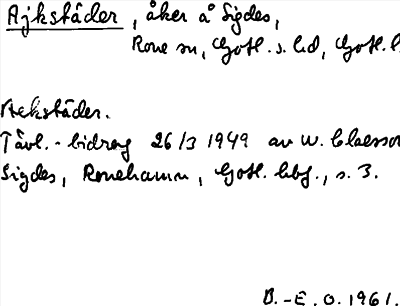 Ajkstäder, åker å Sigdes,
Rone sn, Gotl. s. hd, Gotl. l
Aekstäder.
Tävl.-bidrag 26/3 1949 av W. Claesson
Sigdes, Ronehamn, Gotl. hbg., s. 3.
B.-E. O. 1961.